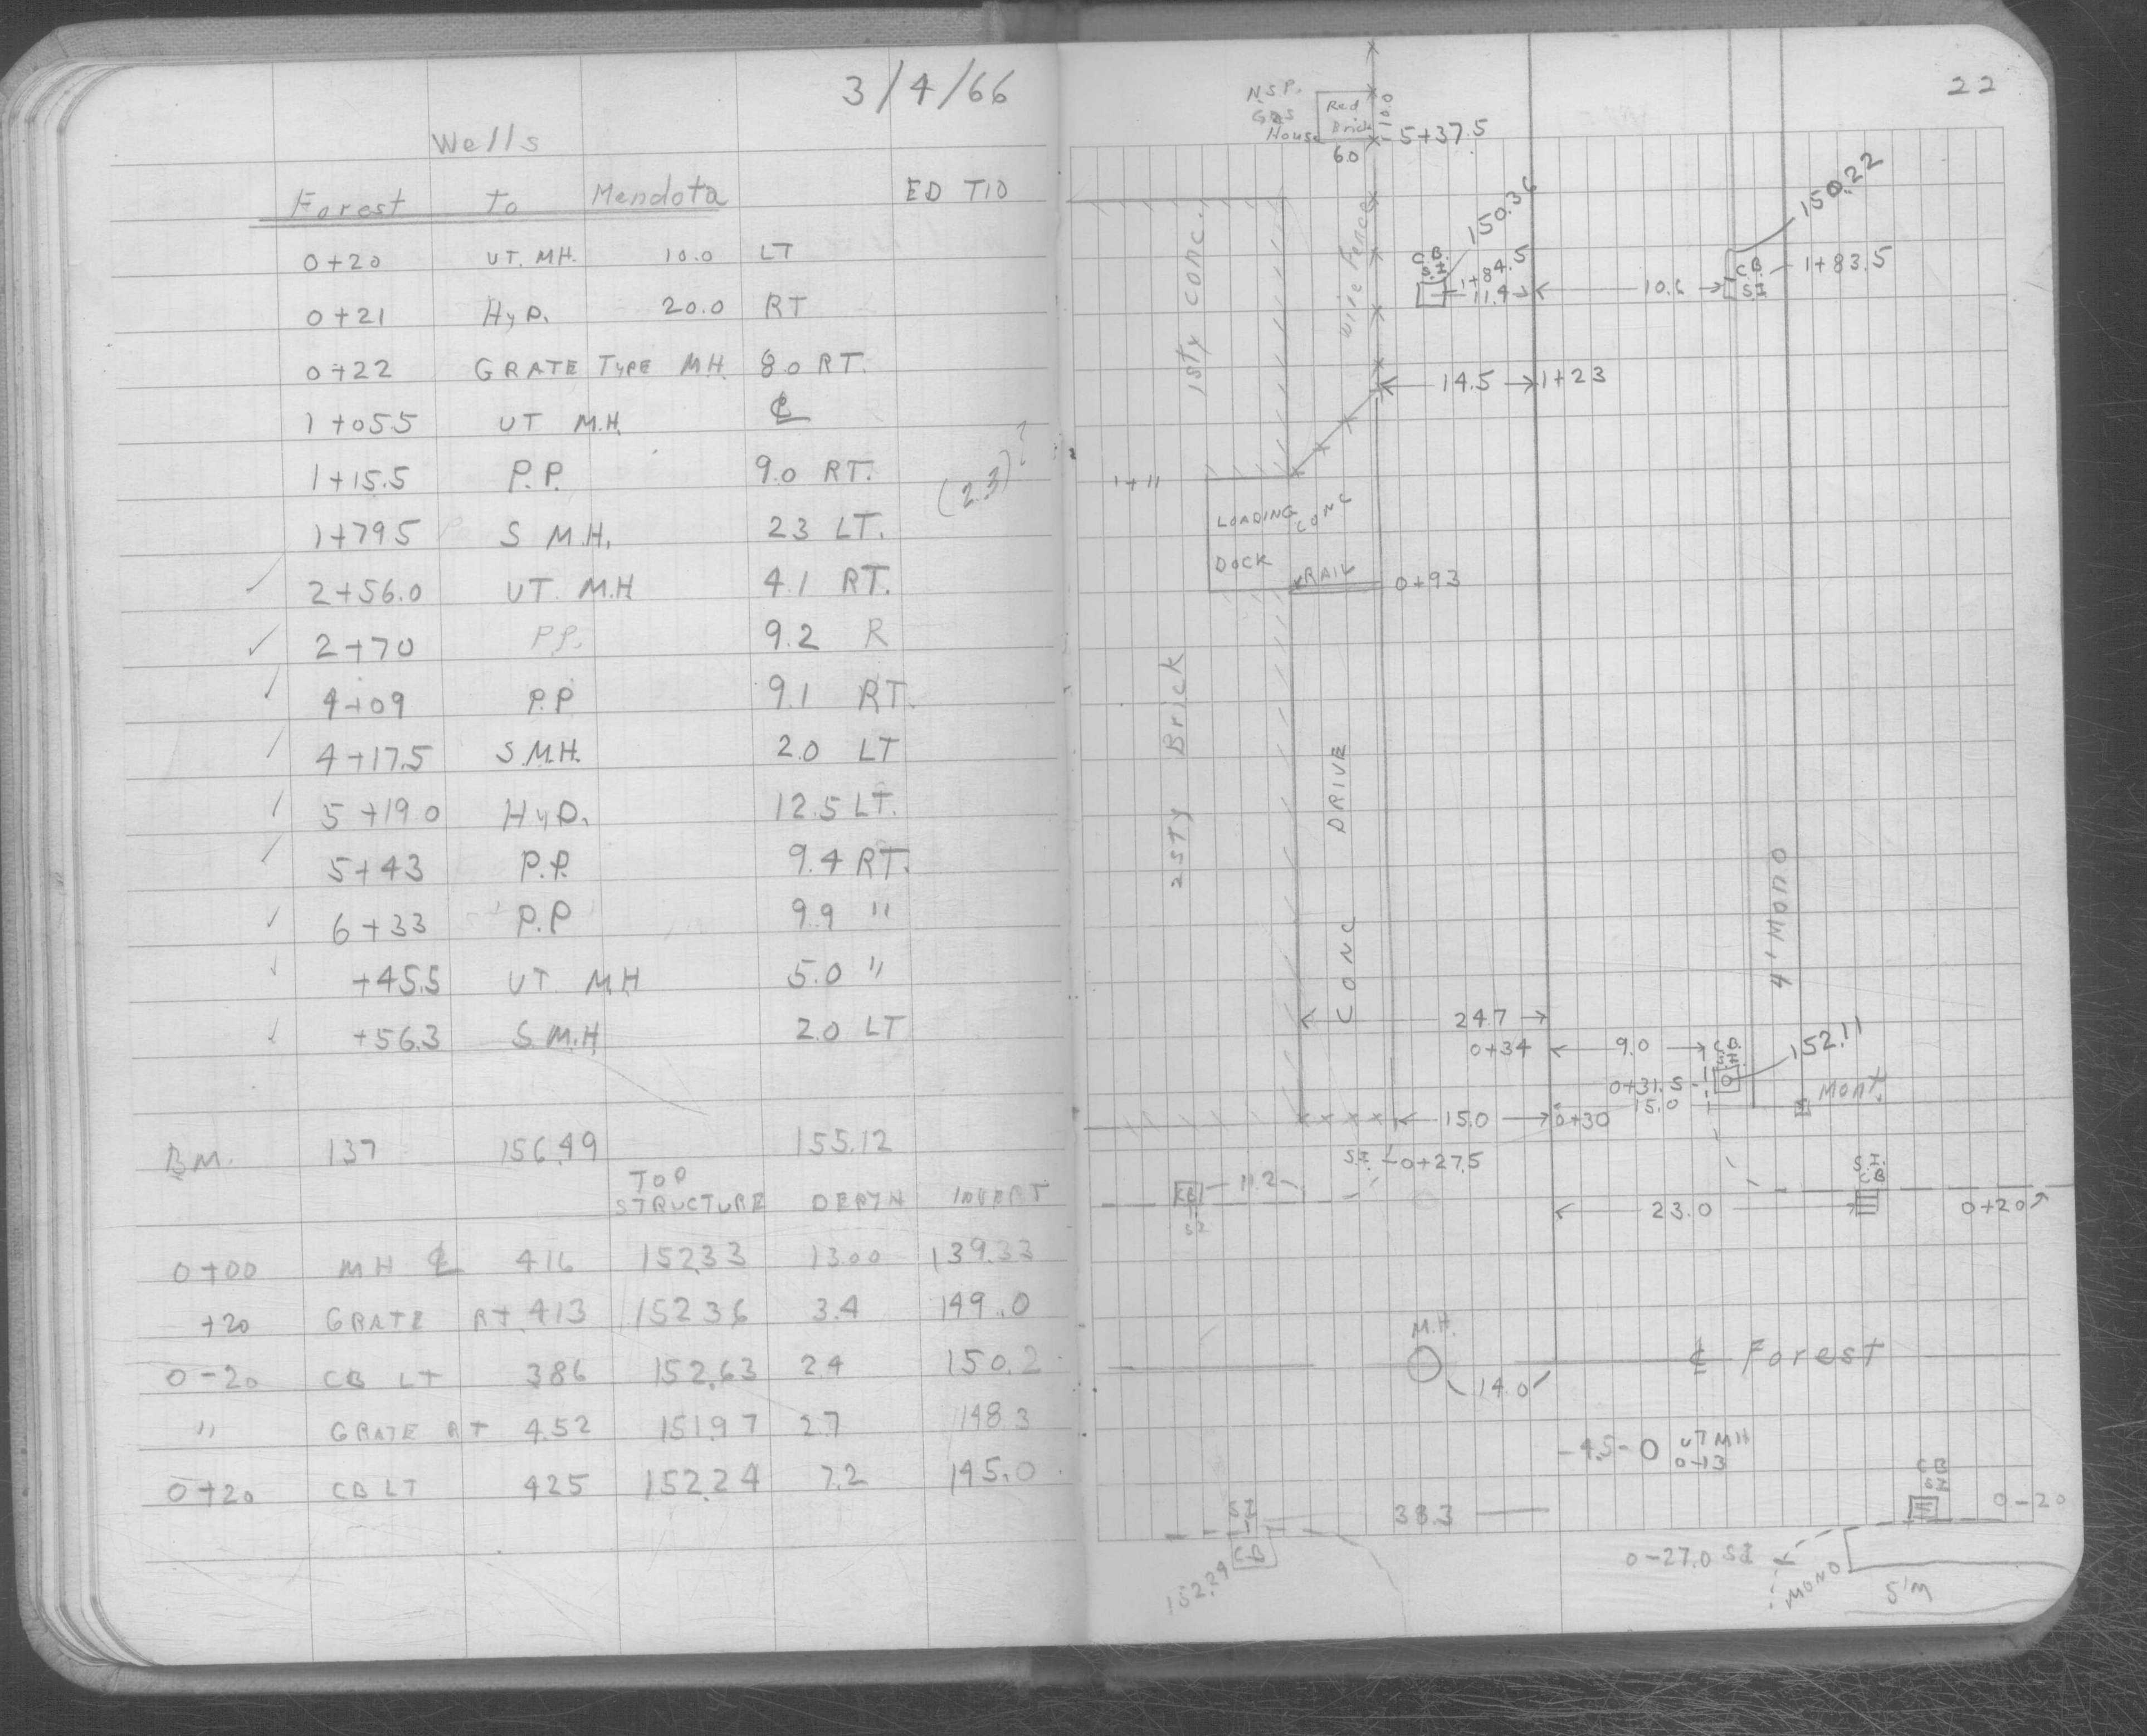 3/4/66
Wells
Forest to Mendota ED TIO
0+20 UT. MH. 10.0 LT
0+21 HyD. 20.0 RT
0+22 GRATE TYPE MH. 8.0 RT.
1+05.5 UT M.H. ℄
1+15.5 P.P. 9.0 RT.
(2.3)?
1+795 S M.H. 23 LT.
✓ 2+56.0 UT. M.H 4.1 RT.
✓ 2+70 P.P. 9.2 R
✓ 4+09 P.P 9.1 RT.
✓ 4+17.5 S.M.H. 2.0 LT
✓ 5+19.0 HyD. 12.5 LT.
✓ 5+43 P.P. 9.4 RT.
✓ 6+33 P.P 9.9 "
✓ +45.5 UT. MH 5.0 "
✓ +56.3 S.M.H 2.0 LT
BM. 137 156.49 155.12
TOP STRUCTURE DEPTH INVERT
0+00 MH ℄ 416 152.33 13.00 139.33
+20 GRATE RT. 413 152.36 3.4 149.0
0-20 CB LT 386 152.63 2.4 150.2
" GRATE RT 4.52 151.97 2.7 148.3
0+20 CB LT 425 152.24 7.2 145.0
22
N.S.P.
Gas
House
Red
Brick
10.0
5+37.5
6.0
1sty conc.
Wire Fence
150.36
C.B.
S.I.
1+84.5
11.4
10.6
150.22
C.B.
S.I.
1+83.5
14.5 1+23
1+11
LOADING
DOCK
CONC
RAIL
0+93
2STY Brick
CONC DRIVE
4' MONO
24.7
0+34
9.0
C.B.
S.I.
152.11
0+31.5
15.0
Mont.
15.0 0+30
S.I. 0+27.5
CB
S.I
11.2
S.I.
CB
23.0
0+20
M.H.
14.0
℄ Forest
4.5 UT MH
0-13
CB
S.I
0-20
38.3
S.I
C-B
152.29
0-27.0 S.I
MONO
5'M